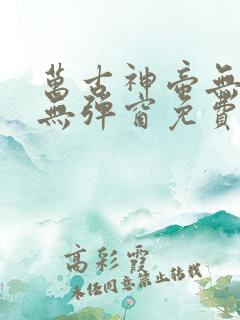 萬古神帝無
無彈窗免費
高彩霞
未經同意禁止轉載